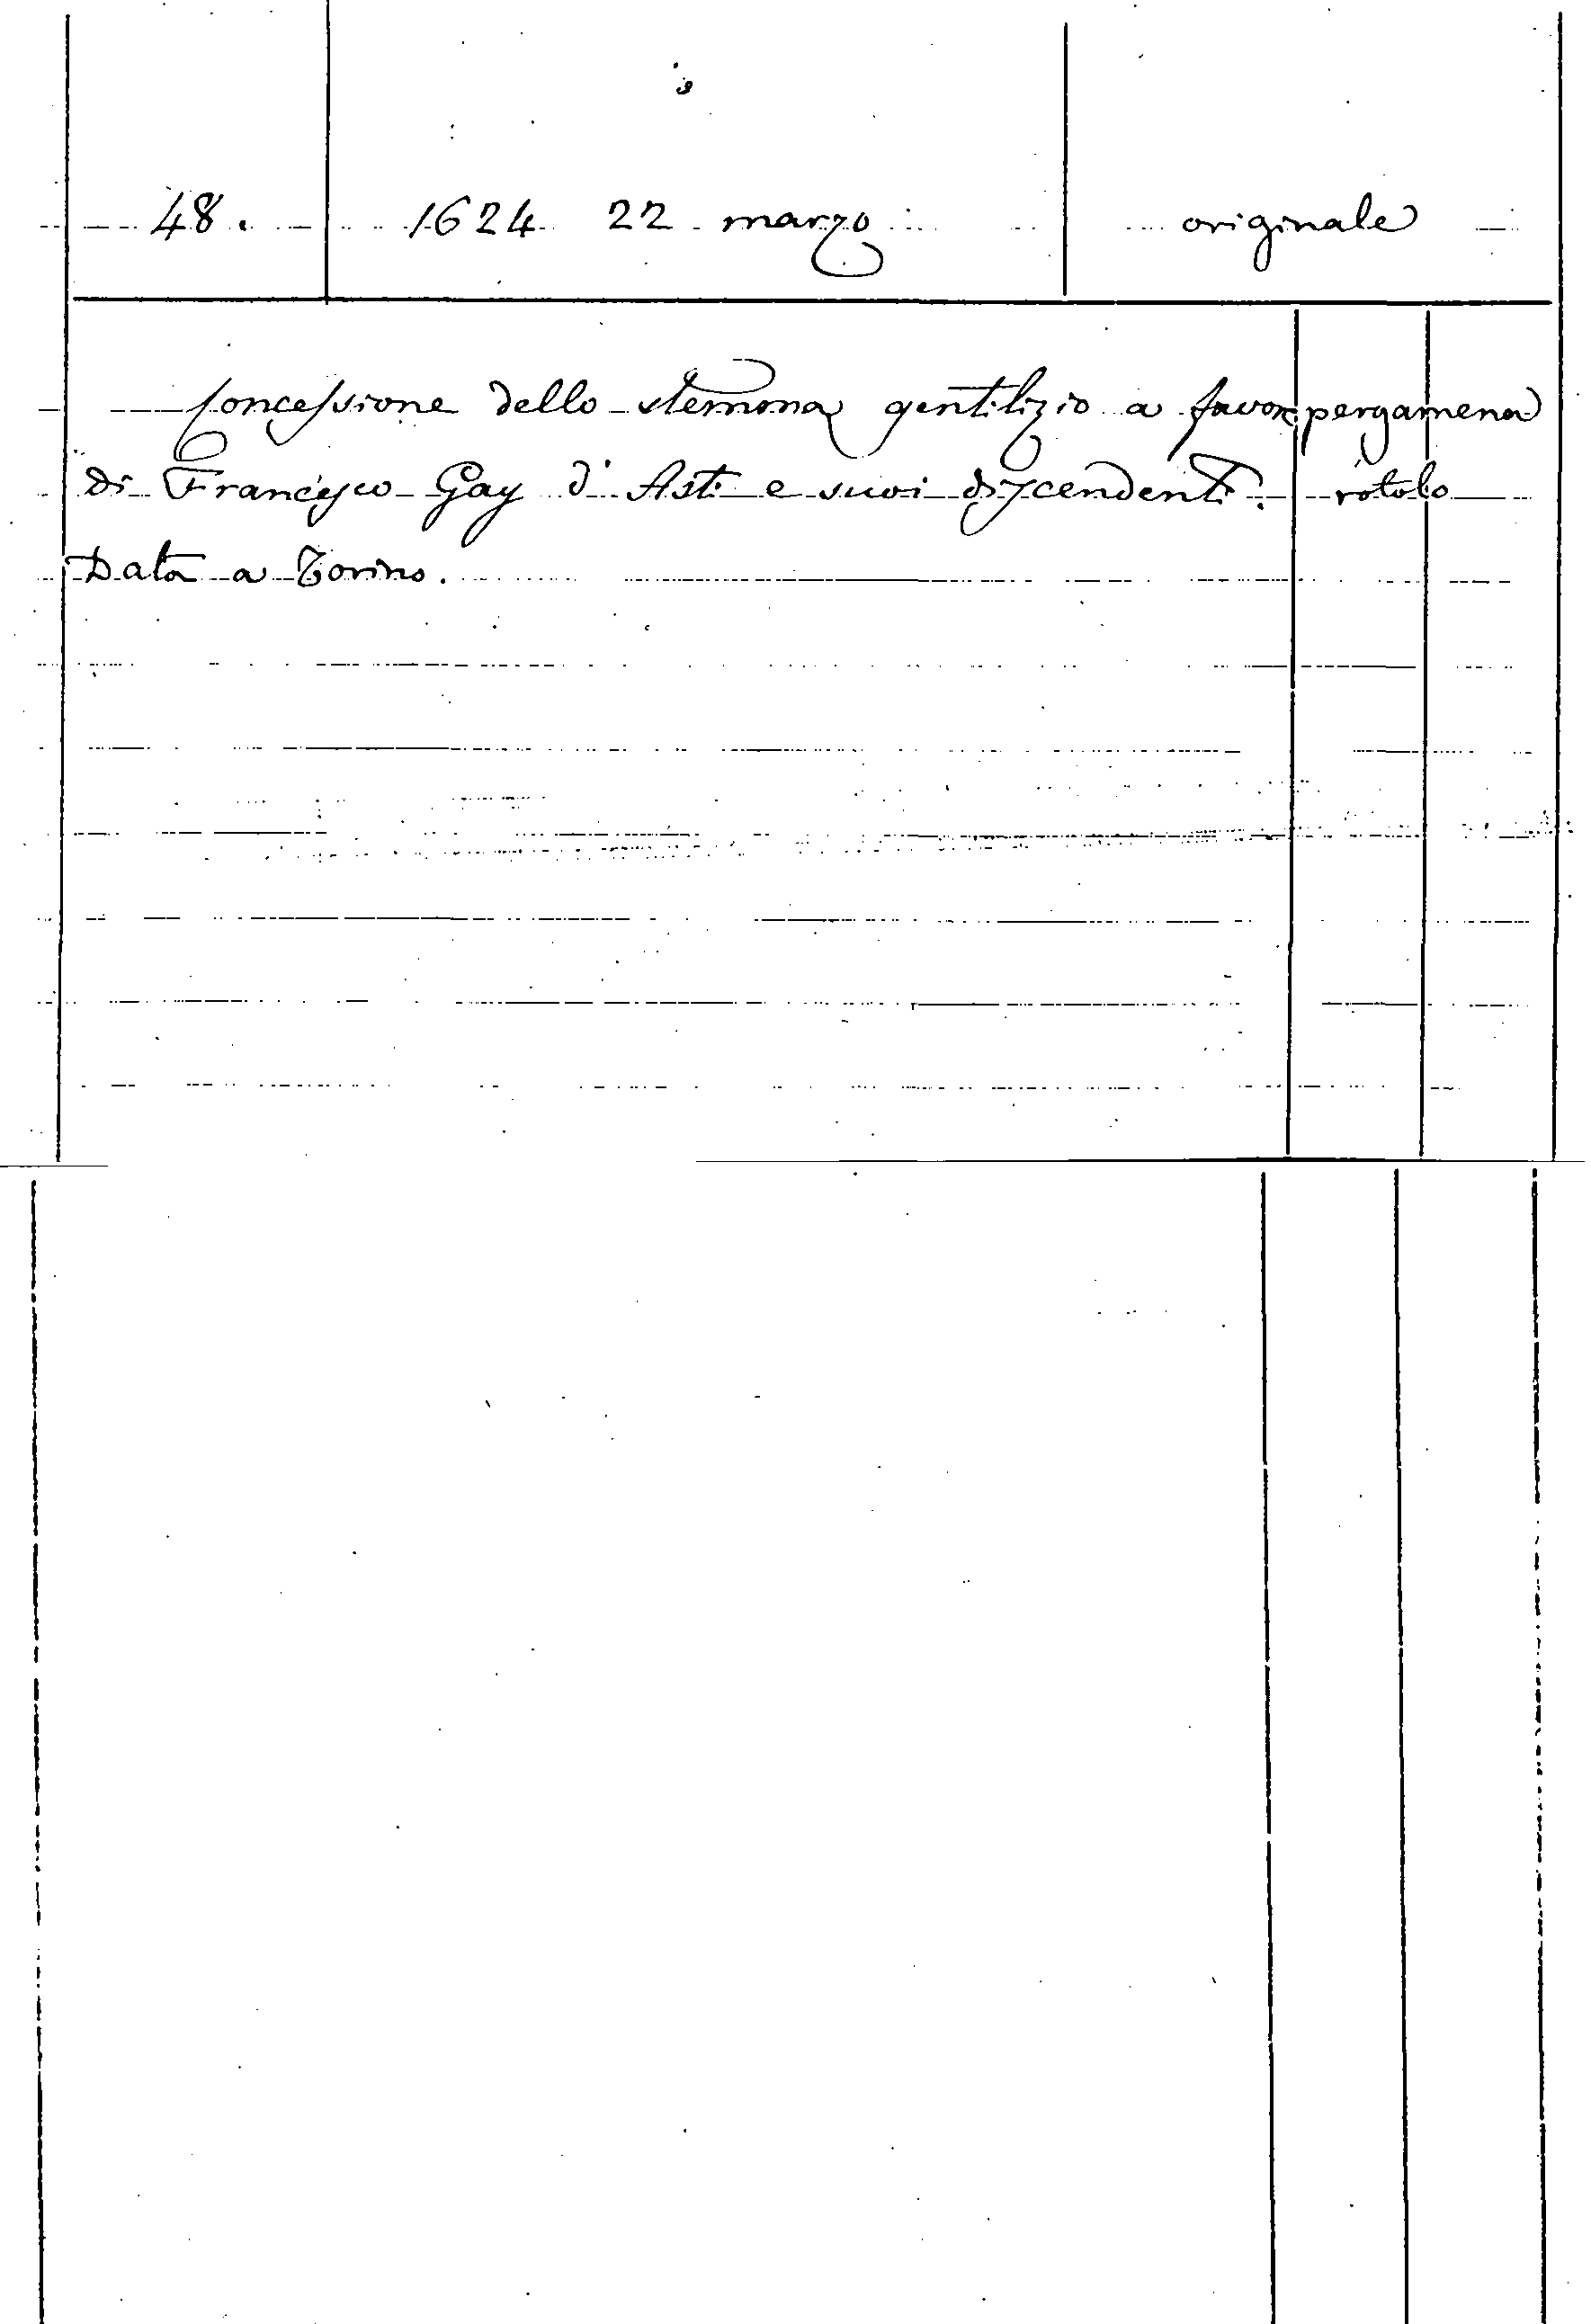 48. 1624 22 marzo originale
Concessione dello stemma gentilizio a favor pergamena
di Francesco Gay d'Asti e suoi discendenti. rotolo
Data a Torino.